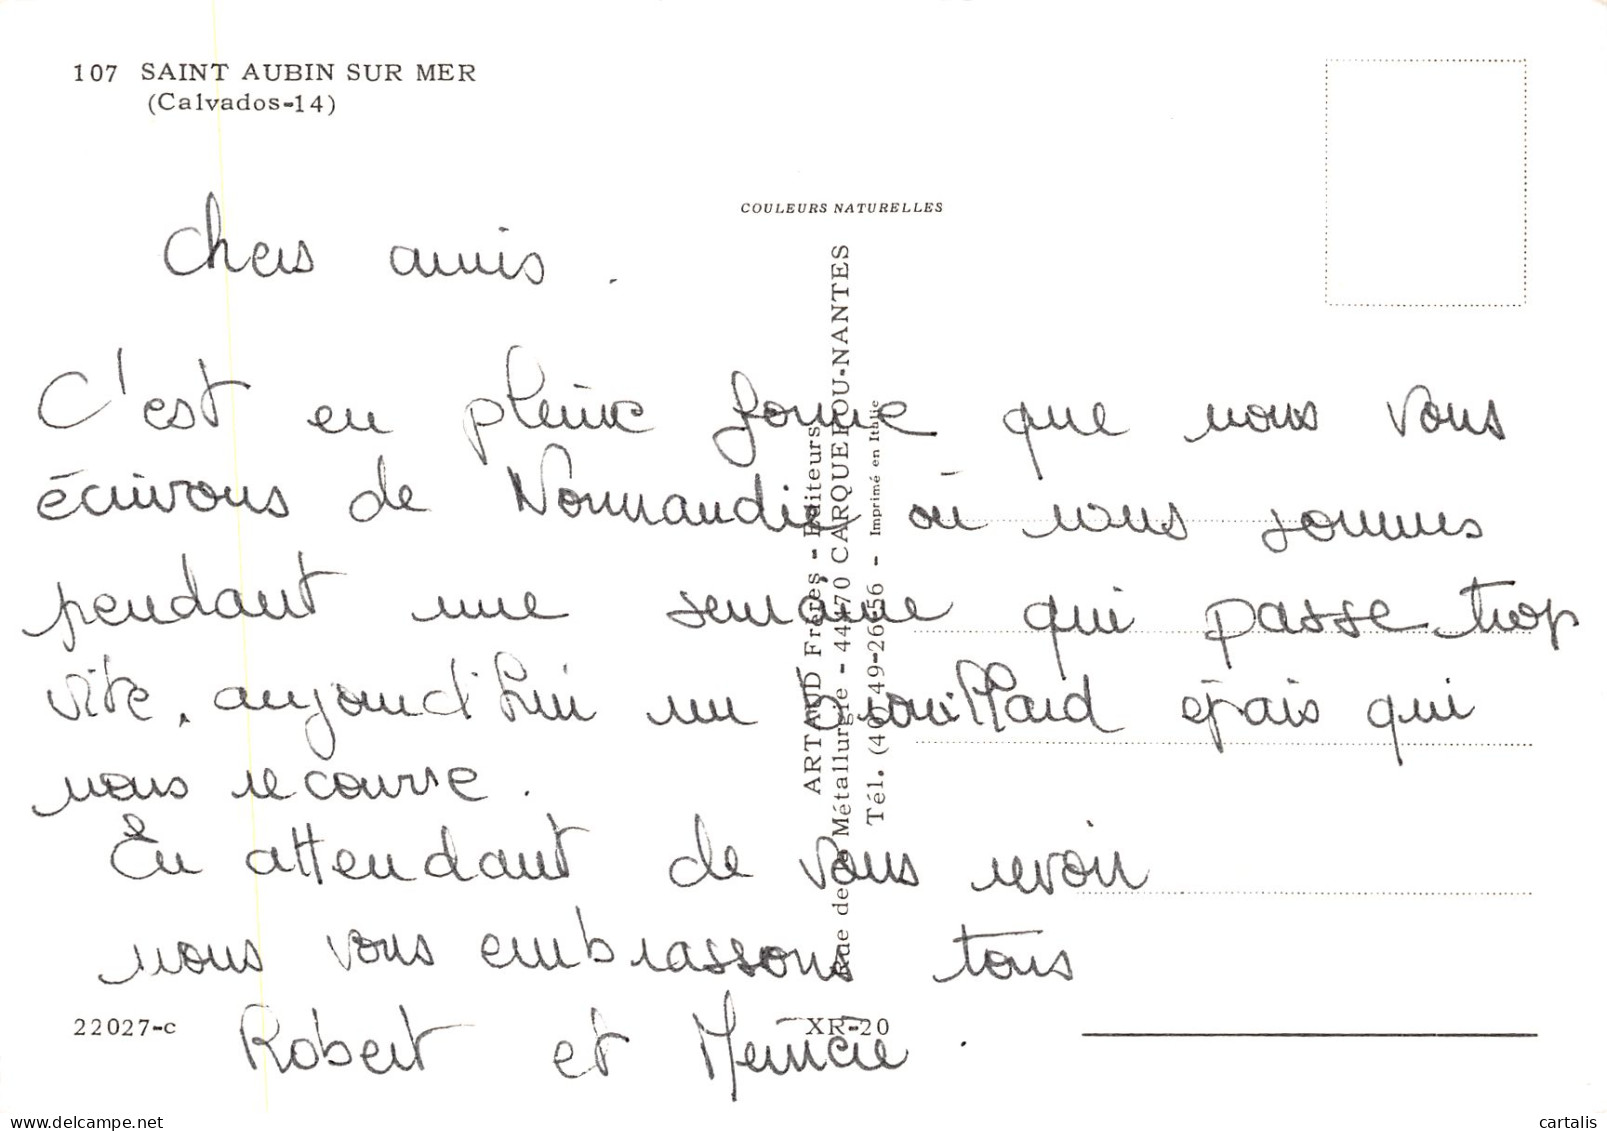 107 SAINT AUBIN SUR MER
(Calvados-14)
COULEURS NATURELLES
Chers amis.
C'est en pleine forme que nous vous
écrivons de Normandie où nous sommes
pendant une semaine qui passe trop
vite, aujourd'hui un brouillard épais qui
nous recouvre.
En attendant de vous revoir
nous vous embrassons tous
Robert et
ARTAUD Frères - Editeurs
Rue de la Métallurgie - 44470 CARQUEFOU-NANTES
Tél. (40) 49-26-56 - Imprimé en Italie
22027-c
XR-20
delcampe.net
cartalis